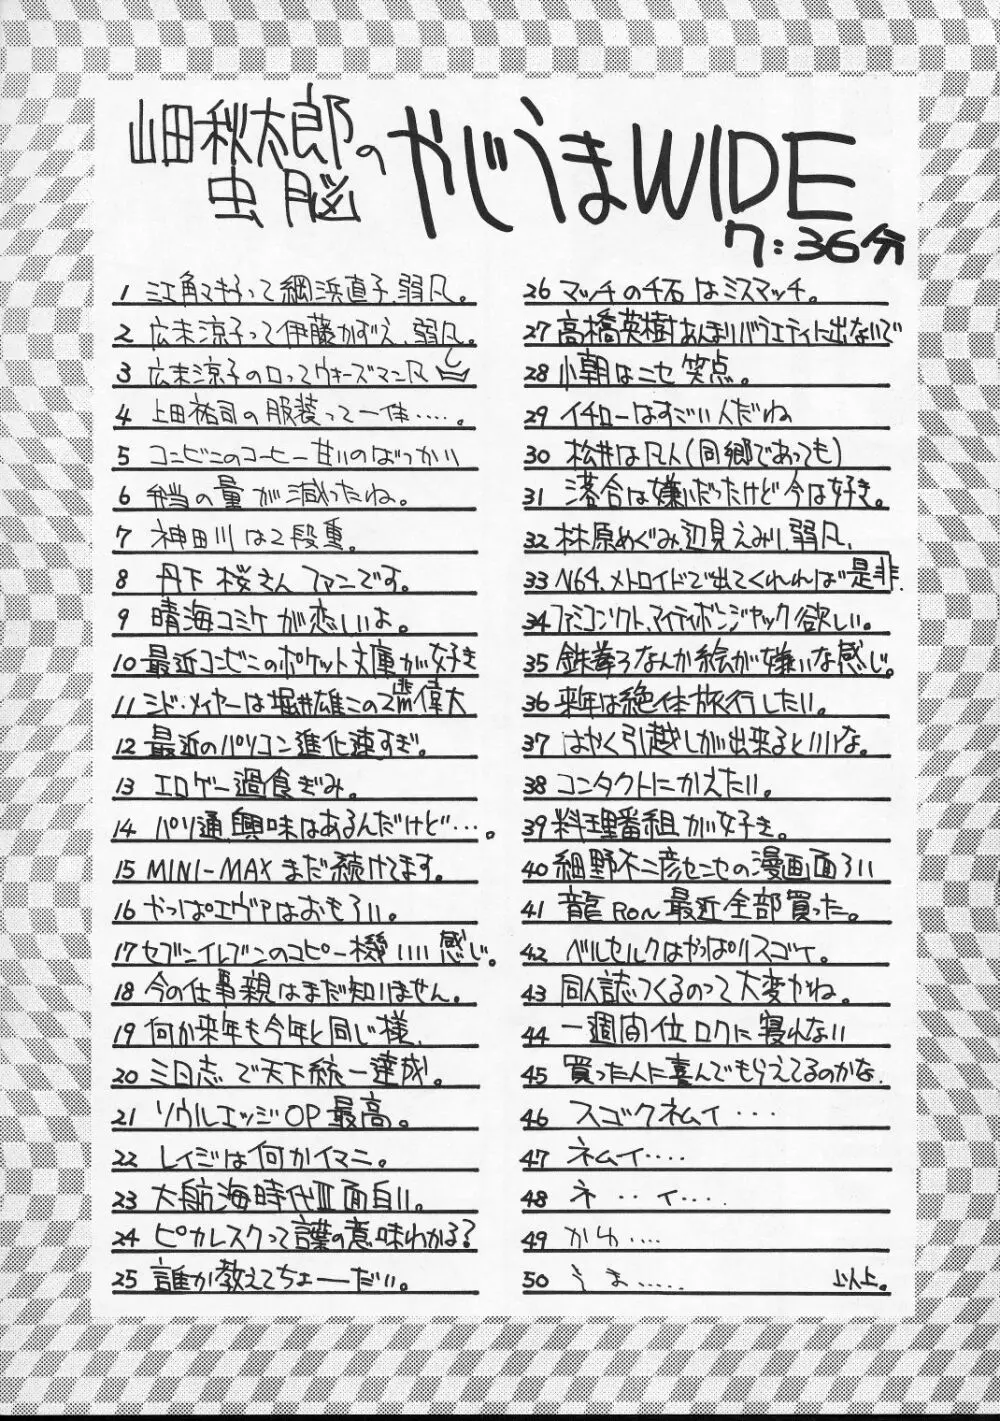 山田秋太郎の
虫脳
やじうまWIDE
7:36分
1 江角マキ子って綱浜直子、弱凡。
2 広末涼子って伊藤かずえ、弱凡。
3 広末涼子の口ってウォーズマン凡
4 上田祐司の服装って一体……。
5 コンビニのコーヒー甘いのばっかい
6 弁当の量が減ったね。
7 神田川は2段重。
8 丹下桜さん ファンです。
9 晴海コミケが恋しいよ。
10 最近コンビニのポケット文庫が好き
11 シド・メイヤーは堀井雄二の2乗偉大
12 最近のパソコン進化速すぎ。
13 エロゲー過食ぎみ。
14 パソ通興味はあるんだけど…。
15 MINI-MAXまだ続けてます。
16 やっぱエヴァはおもろい。
17 セブンイレブンのコピー機いい感じ。
18 今の仕事親はまだ知りません。
19 何か来年も今年と同じ様、
20 三国志で天下統一達成。
21 ソウルエッジOP最高。
22 レイジは何かイマニ。
23 大航海時代Ⅲ面白い。
24 ピカレスクって言葉の意味わかる?
25 誰か教えてちょーだい。
26 マッチの千石はミスマッチ。
27 高橋英樹あんまりバラエティに出ないで
28 小朝はニセ笑点。
29 イチローはすごい人だね
30 松井は凡人(同郷であっても)
31 落合は嫌いだったけど今は好き。
32 林原めぐみ、辺見えみり、弱凡、
33 N64、メトロイドで出てくれれば是非.
34 ファミコンソフト、マイティボンジャック欲しい。
35 鉄拳3なんか絵が嫌いな感じ。
36 来年は絶体旅行したい。
37 はやく引越しが出来るといいな。
38 コンタクトにかえたい。
39 料理番組が好き。
40 細野不二彦センセの漫画面ろい
41 龍Ron最近全部買った。
42 ベルセルクはやっぱりスゴイ。
43 同人誌つくるのって大変かね。
44 一週間位ロクに寝れない
45 買った人に喜んでもらえてるのかな.
46 スゴクネムイ…
47 ネムイ‥‥
48 ネ‥イ‥‥
49 かゆ‥‥
50 うま…… 以上。